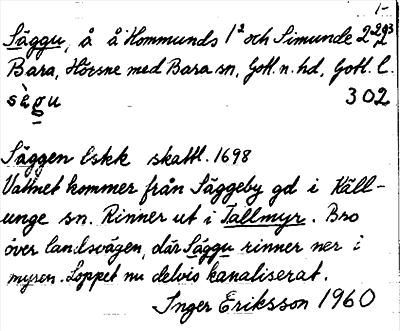 1-
Säggu, å å Hommunds 1² och Simunde 2
Bara, Hörsne med Bara sn, Gotl. n. hd, Gotl. l.
sègu 302
Säggen lskk skattl. 1698
Vattnet kommer från Säggeby gd i Käll-
unge sn. Rinner ut i Tallmyr. Bro
över landsvägen, där Säggu rinner ner i
myren. Loppet nu delvis kanaliserat.
Inger Eriksson 1960